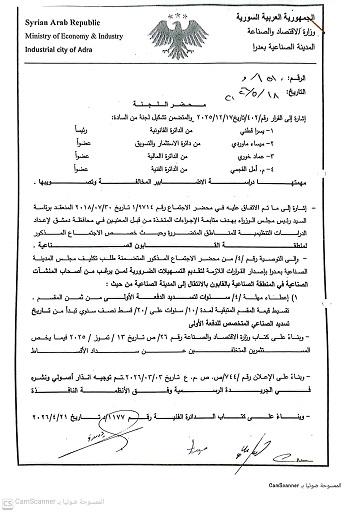 الجمهورية العربية السورية
وزارة الاقتصاد والصناعة
المدينة الصناعية بعدرا
Syrian Arab Republic
Ministry of Economy & Industry
Industrial city of Adra
الرقم:
التاريخ:
محضر اللجنة
إشارة إلى القرار رقم /٤٠٢/ تاريخ ٢٠٢٥/١٢/١٧ والمتضمن تشكيل لجنة من السادة:
١- يسرا قطني من الدائرة القانونية رئيساً
٢- ميساء ماوردي من دائرة الاستثمار والتسويق عضواً
٣- حماد خوري من الدائرة المالية عضواً
٤- م. أمل القجمي من الدائرة الفنية عضواً
مهمتها دراسة الاضابير المخالفة وتصويبها.
- إشارة إلى ما تم الاتفاق عليه في محضر الاجتماع ١/٩٧١٤ تاريخ ٢٠١٨/٠٧/٣٠ المنعقد برئاسة
السيد رئيس مجلس الوزراء بهدف متابعة الإجراءات المتخذة من قبل المعنيين في محافظة دمشق لإعداد
الدراسات التنظيمية للمناطق المتضررة وحيث خصص الاجتماع المذكور
لمنطقة القابون الصناعية
- وإلى التوصية رقم /٤/ من محضر الاجتماع المذكور المتضمنة طلب تكليف مجلس المدينة
الصناعية بعدرا بإصدار القرارات اللازمة لتقديم التسهيلات الضرورية لمن يرغب من أصحاب المنشآت
الصناعية في المنطقة الصناعية بالقابون بالانتقال إلى المدينة الصناعية من حيث:
١) إعطاء مهلة /٤/ سنوات لتسديد الدفعة الأولى من ثمن المقسم.
تقسيط قيمة المقسم المتبقية لمدة /١٠/ سنوات على /٢٠/ قسط نصف سنوي تبدأ من تاريخ
تسديد الصناعي المتخصص للدفعة الأولى
- وبناء على كتاب وزارة الاقتصاد والصناعة رقم /٢٦/ ص تاريخ ١٣ / تموز / ٢٠٢٥ فيما يخص
المستثمرين المتخلفين عن سداد الأقساط
- وبناء على الإعلان رقم /٧٤٤/ ص. م. ع تاريخ ٢٠٢٦/٠٣/٠٣ تم توجيه انذار أصولي ونشره
في الجريدة الرسمية وفق الأنظمة النافذة
- وبناء على كتاب الدائرة الفنية رقم /١١٧٧/ تاريخ ٢٠٢٦/٤/٢١
CamScanner المصحوبة ضوئيا بـ
CamScanner المصحوبة ضوئيا بـ